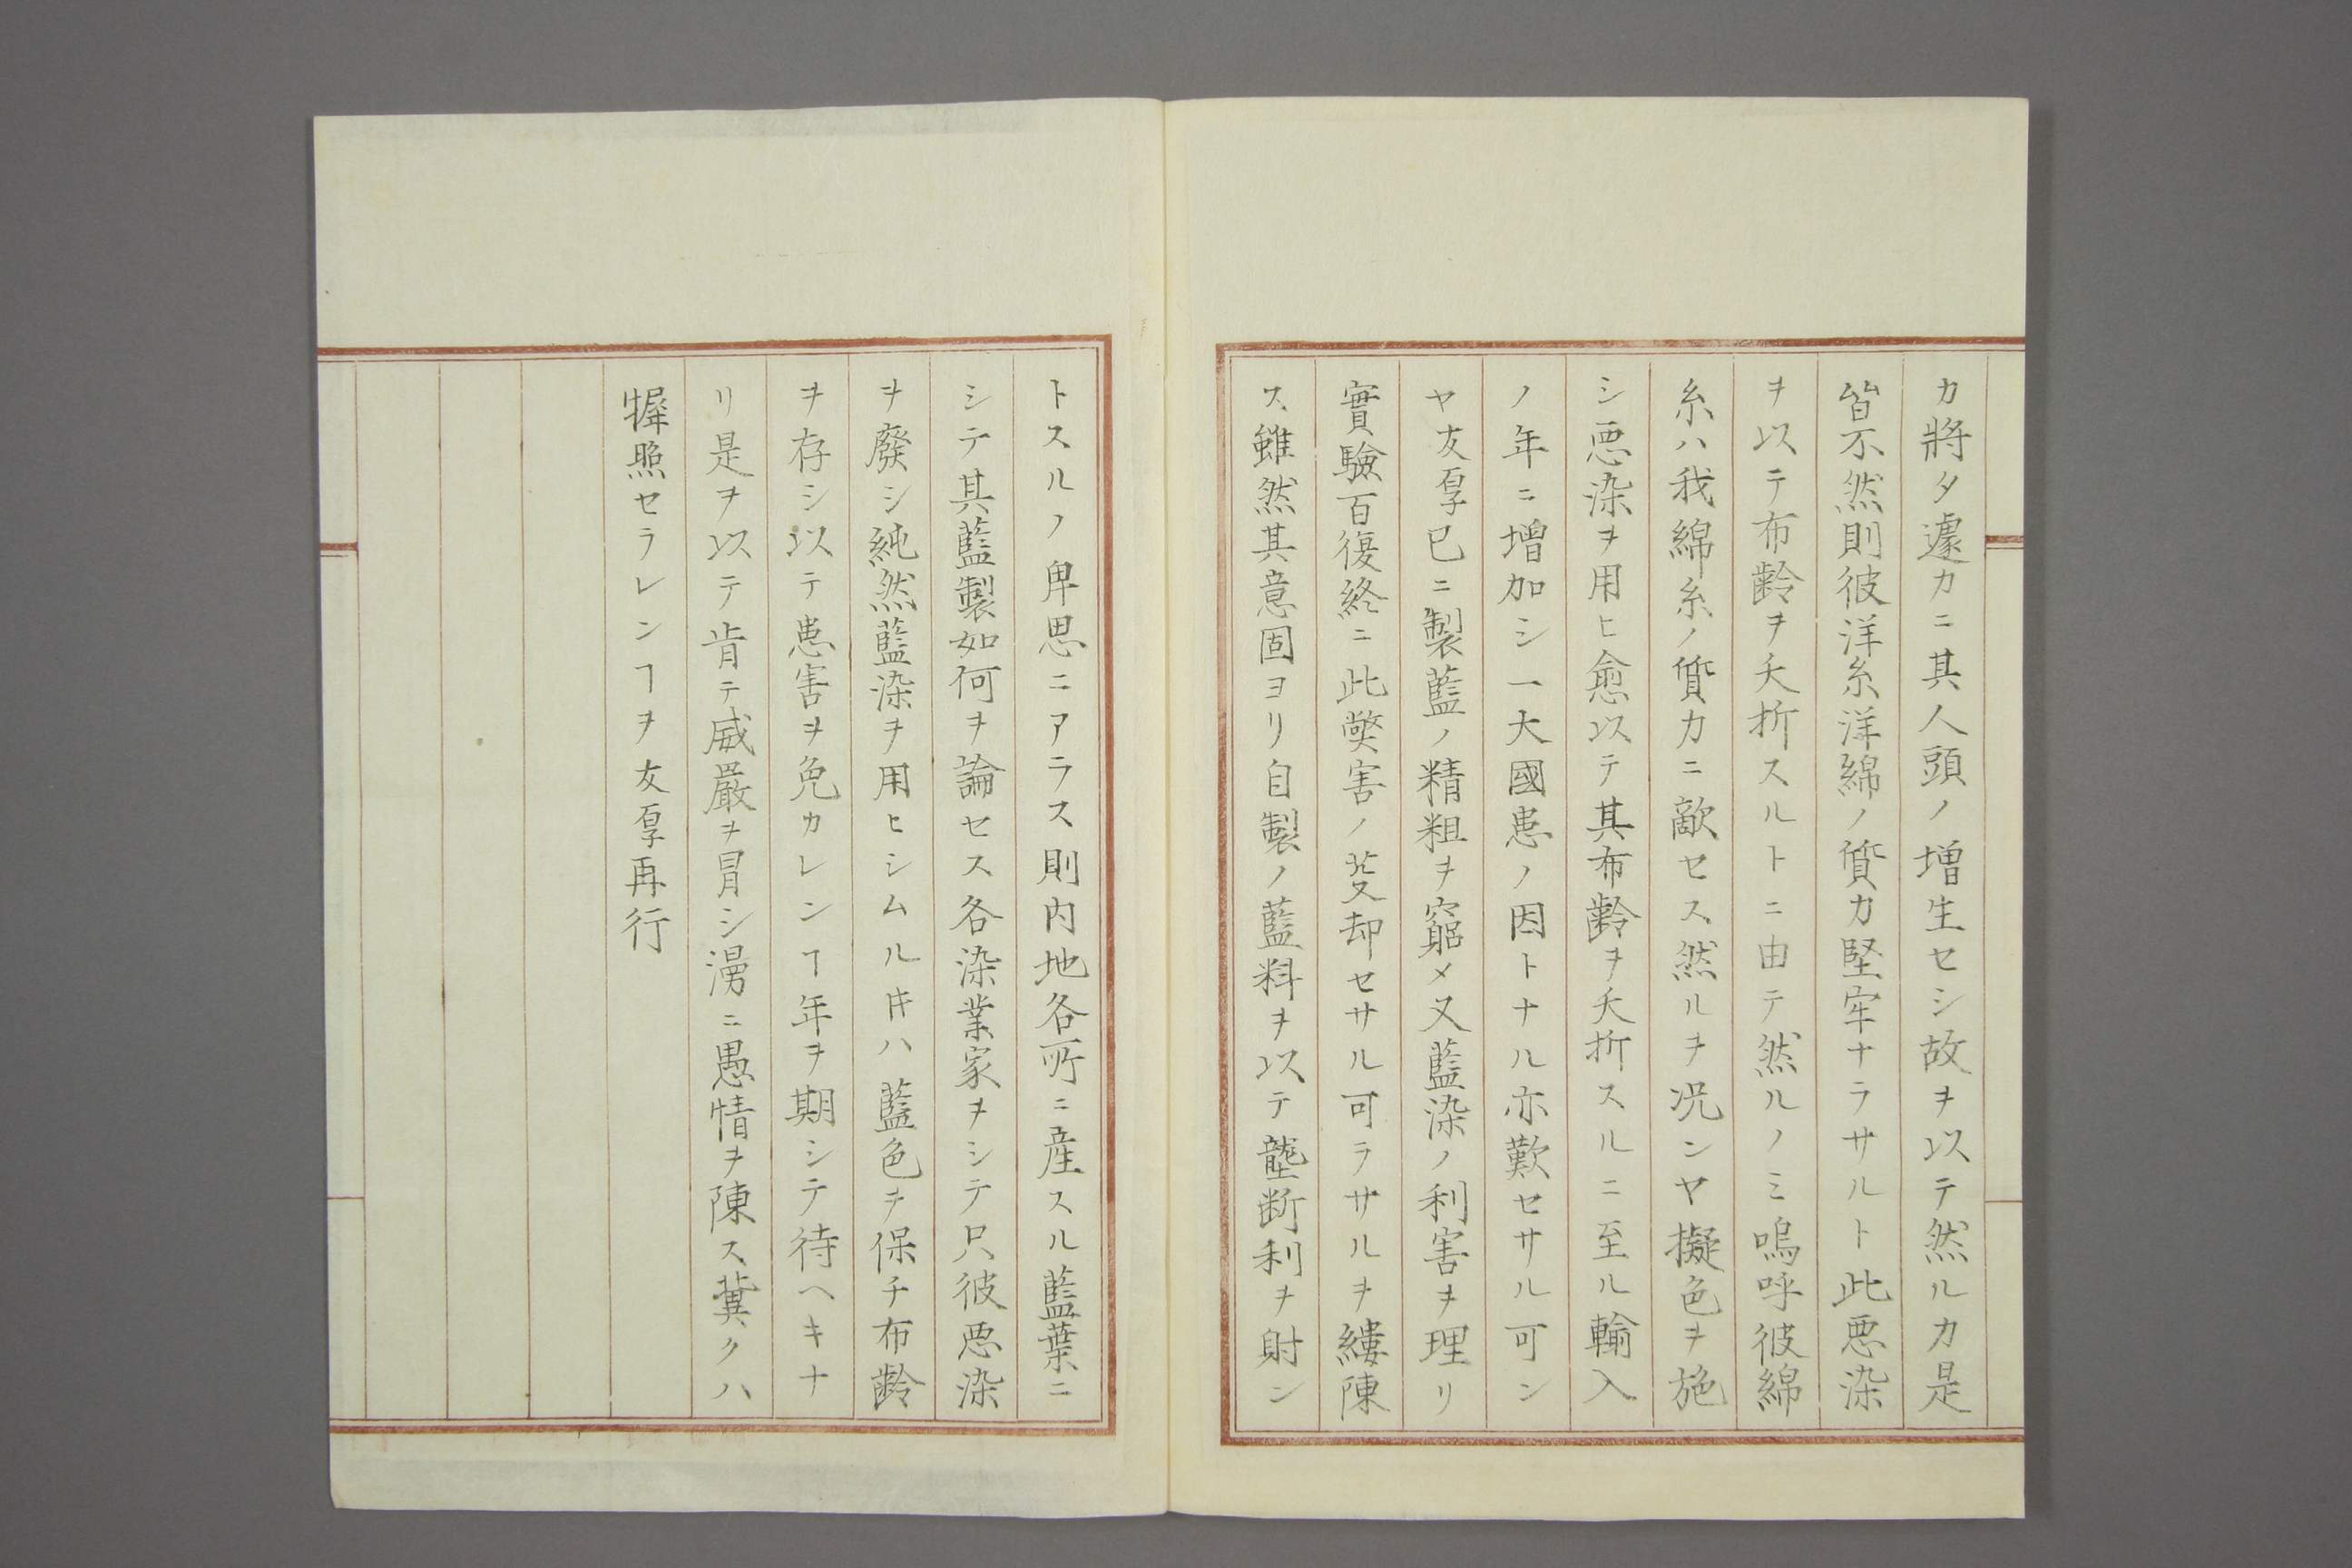 カ將タ遽カニ其人頭ノ増生セシ故ヲ以テ然ルカ是
皆不然則彼洋糸洋綿ノ質力堅牢ナラサルト此悪染
ヲ以テ布齢ヲ夭折スルトニ由テ然ルノミ嗚呼彼綿
糸ハ我綿糸ノ質力ニ敵セス然ルヲ况ンヤ擬色ヲ施
シ悪染ヲ用ヒ愈以テ其布齢ヲ夭折スルニ至ル輸入
ノ年ニ増加シ一大國患ノ因トナル亦歎セサル可ン
ヤ友厚已ニ製藍ノ精粗ヲ窮メ又藍染ノ利害ヲ理リ
實驗百復終ニ此弊害ノ芟却セサル可ラサルヲ縷陳
ス雖然其意固ヨリ自製ノ藍料ヲ以テ壟断利ヲ射ン
トスルノ卑思ニアラス則内地各所ニ産スル藍葉ニ
シテ其藍製如何ヲ論セス各染業家ヲシテ只彼悪染
ヲ廢シ純然藍染ヲ用ヒシムルキハ藍色ヲ保チ布齢
ヲ存シ以テ患害ヲ免カレンヿ年ヲ期シテ待ヘキナ
リ是ヲ以テ肯テ威嚴ヲ冒シ漫ニ愚情ヲ陳ス冀クハ
犀照セラレンヿヲ友厚再行